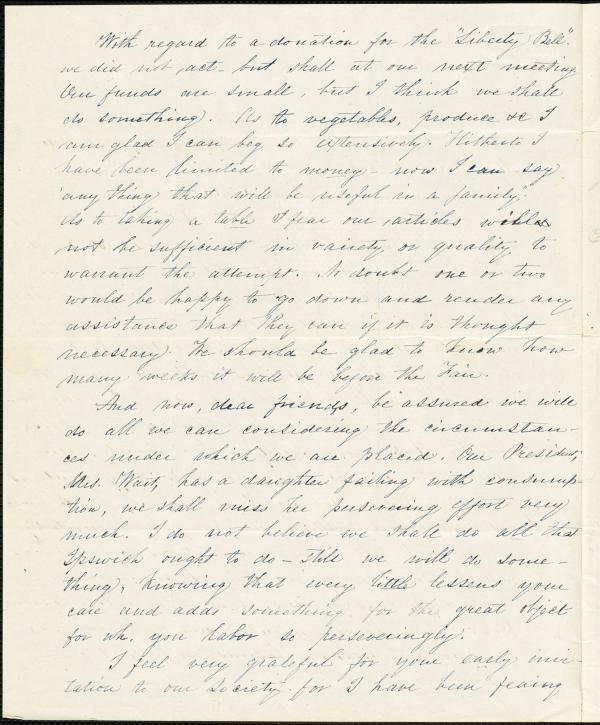 With regard to a donation for the "Liberty Bell".
we did not act - but shall at our next meeting
Our funds are small, but I think we shall
do something. As to vegetables, produce &c I
am glad I can beg so extensively. Hitherto I
have been limited to money - now I can say
"any thing that will be useful in a family".
As to taking a table I fear our articles will
not be sufficient in vairety or quality to
warrant the attempt. No doubt one or two
would be happy to go down and render any
assistance that they can if it is thought
necessary. We should be glad to know how
many weeks it will be before the Fair.
And now, dear friends, be assured we will
do all we can considering the circumstan-
ces under which we are placed. Our President,
Mrs. Wait, has a daughter failing with consump-
tion, we shall miss her persevering effort very
much. I do not believe we shall do all that
Ipswich ought to do - still we will do some-
thing, knowing that every little lessens your
care and adds something for the great object
for wh. you labor so perseveringly.
I feel very grateful for your early invi-
tation to our Society for I have been fearing